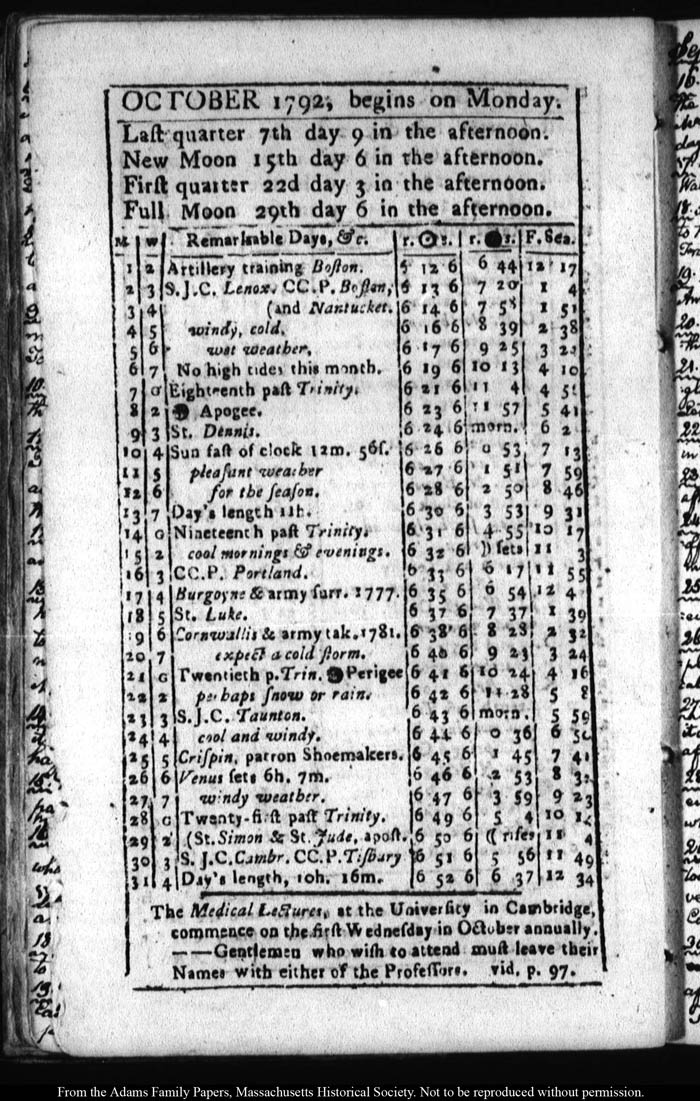 OCTOBER 1792, begins on Monday.
Laſt quarter 7th day 9 in the afternoon.
New Moon 15th day 6 in the afternoon.
Firſt quarter 22d day 3 in the afternoon.
Full Moon 29th day 6 in the afternoon.
M. W. Remarkable Days, &c. r. ☉ s. r. ● s. F. Sea.
1 2 Artillery training Boſton. 6 12 6 6 44 12 17
2 3 S.J.C. Lenox. CC.P. Boſton, 6 13 6 7 20 1 4
3 4 (and Nantucket. 6 14 6 7 58 1 51
4 5 windy, cold. 6 16 6 8 39 2 38
5 6 wet weather. 6 17 6 9 25 3
6 7 No high tides this month. 6 19 6 10 13 4 10
7 G Eighteenth paſt Trinity. 6 21 6 11 4 4
8 2 ● Apogee. 6 23 6 11 57 5 41
9 3 St. Dennis. 6 24 6 morn. 6 2
10 4 Sun faſt of clock 12m. 56ſ. 6 26 6 0 53 7 13
11 5 pleaſant weather 6 27 6 1 51 7 59
12 6 for the ſeaſon. 6 28 6 2 50 8 46
13 7 Day's length 11h. 6 30 6 3 53 9 31
14 G Nineteenth paſt Trinity. 6 31 6 4 55 10 17
15 2 cool mornings & evenings. 6 32 6 ☽ ſets 11 3
16 3 CC.P. Portland. 6 33 6 6 17 11 55
17 4 Burgoyne & army ſurr. 1777. 6 35 6 6 54 12 4
18 5 St. Luke. 6 37 6 7 37 1 39
19 6 Cornwallis & army tak. 1781. 6 38 6 8 28 2 32
20 7 expect a cold ſtorm. 6 40 6 9 23 3 24
21 G Twentieth p. Trin. ● Perigee 6 41 6 10 24 4 16
22 2 perhaps ſnow or rain. 6 42 6 11 28 5 8
23 3 S.J.C. Taunton. 6 43 6 morn. 5 59
24 4 cool and windy. 6 44 6 0 36 6
25 5 Criſpin, patron Shoemakers. 6 45 6 1 45 7 41
26 6 Venus ſets 6h. 7m. 6 46 6 2 53 8
27 7 windy weather. 6 47 6 3 59 9 23
28 G Twenty-firſt paſt Trinity. 6 49 6 5 4 10
29 2 (St. Simon & St. Jude, apoſt. 6 50 6 ☾ riſes 11 4
30 3 S. J.C. Cambr. CC.P. Tiſbury 6 51 6 5 56 11 49
31 4 Day's length, 10h. 16m. 6 52 6 6 37 12 34
The Medical Lectures, at the Univerſity in Cambridge,
commence on the firſt Wedneſday in October annually.
——Gentlemen who wiſh to attend muſt leave their
Names with either of the Profeſſors. vid. p. 97.
From the Adams Family Papers, Massachusetts Historical Society. Not to be reproduced without permission.